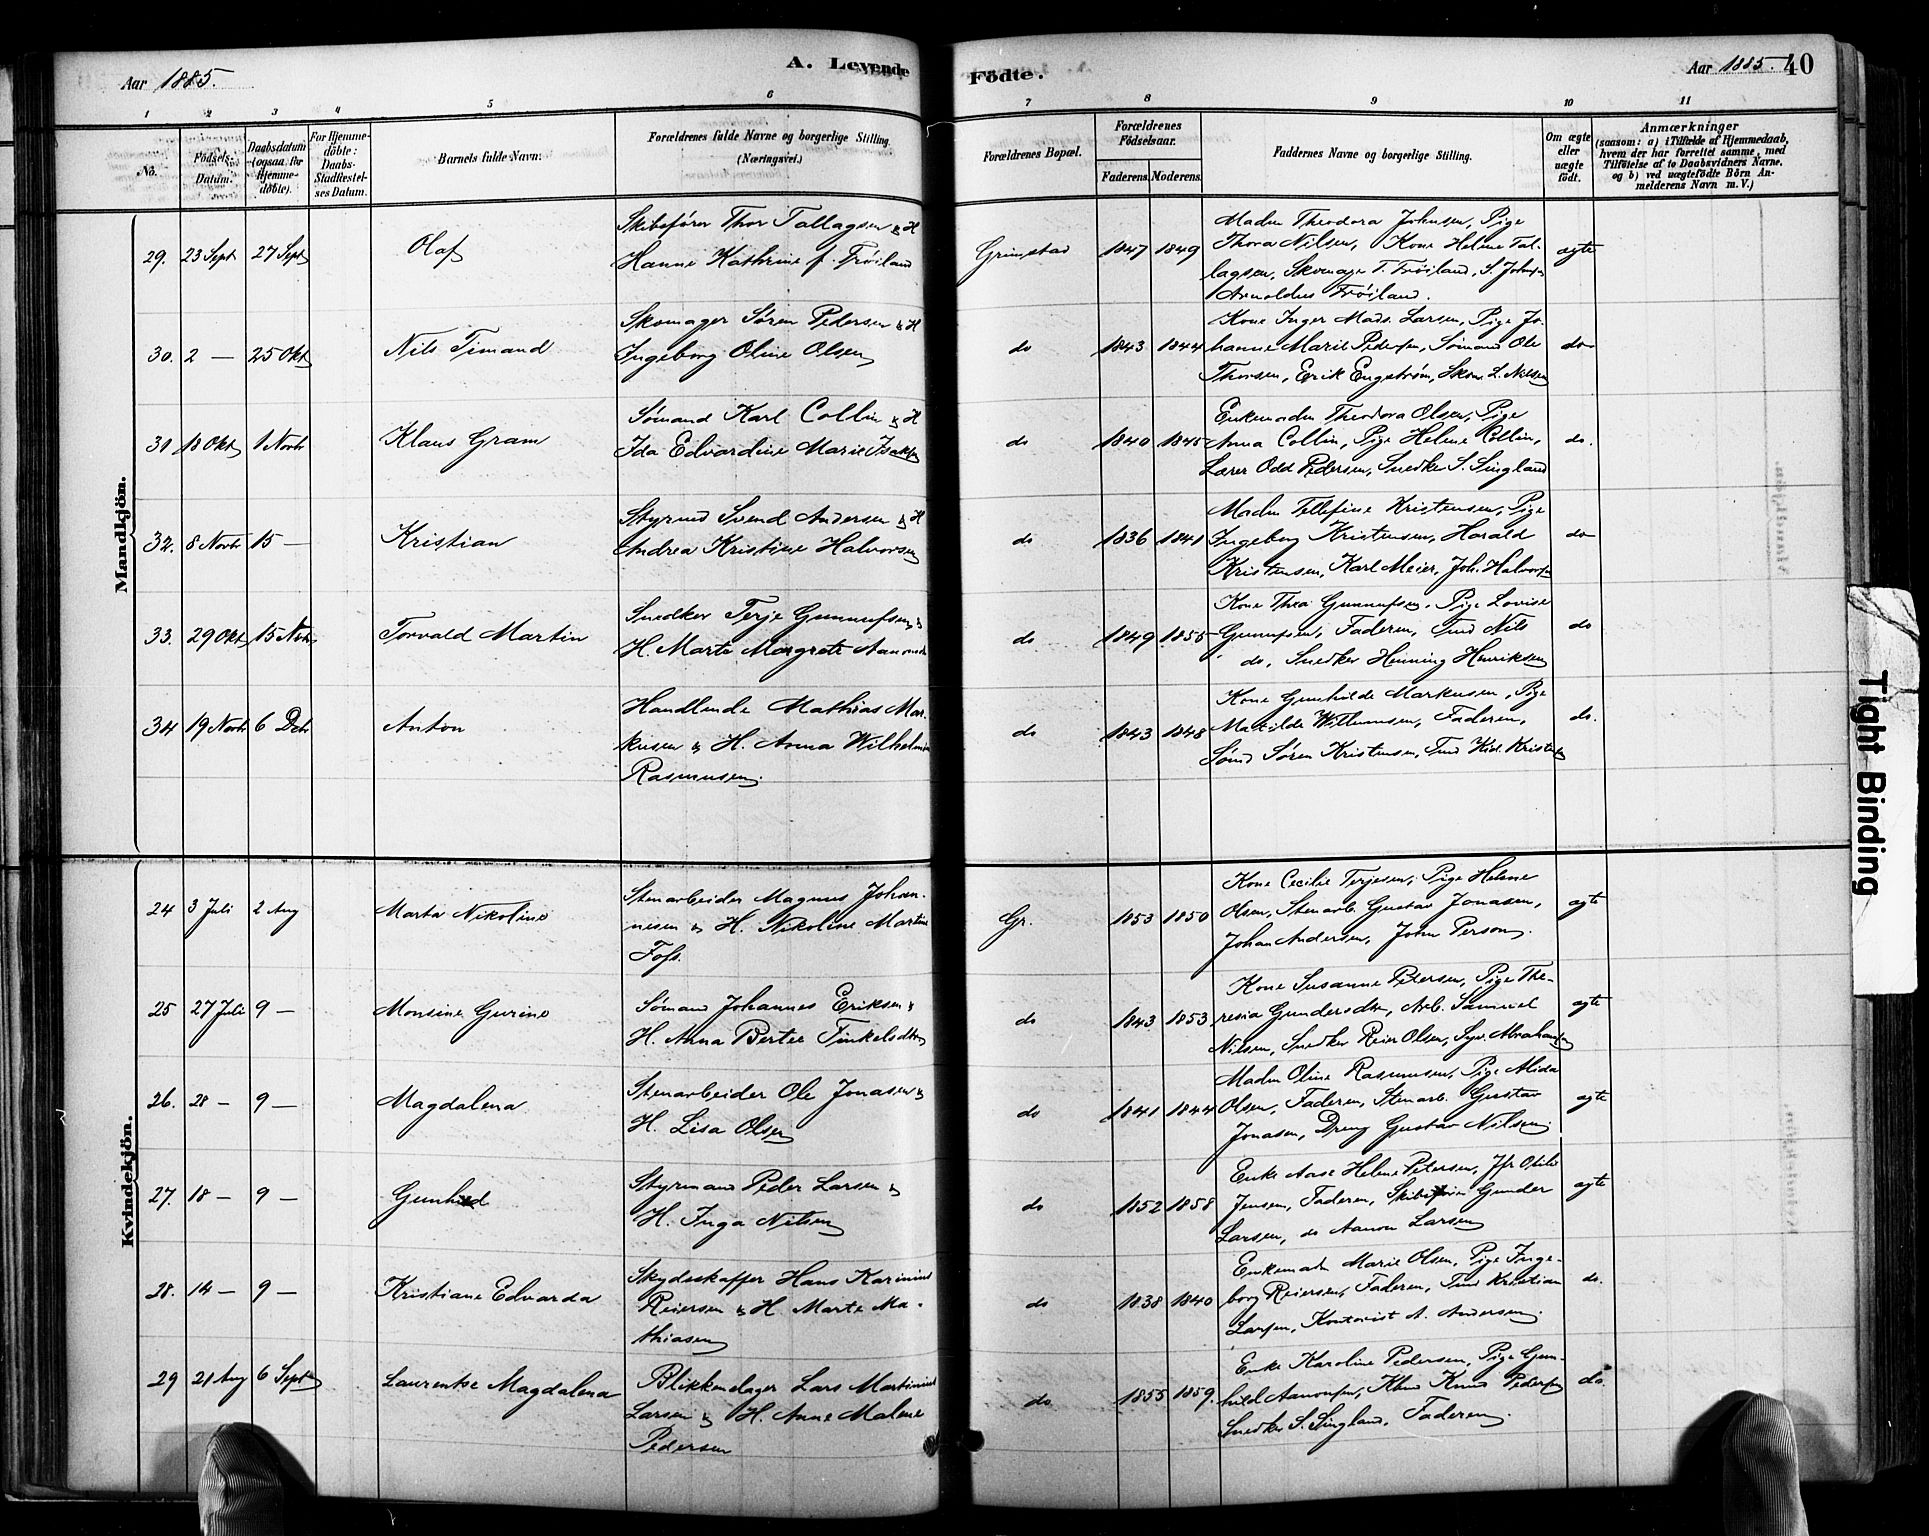 Aar 1885.
A. Levende
Fodte.
Aar 1885.
40
1 2 3 4 5 6
7 8 9 10 11
No.
Födsels-
Datum.
Daabsdatum
(ogsaa for
Hjemme-
döbte).
For Hjemme-
döbte:
Daabs-
Stadfæstel-
ses Datum.
Barnets fulde Navn.
Forældrenes fulde Navne og borgerlige Stilling.
(Næringsvei.)
Forældrenes Bopæl.
Forældrenes
Födselsaar.
Faderens. Moderens.
Faddernes Navne og borgerlige Stilling.
Om ægte
eller
uægte
födt.
Anmærkninger
(saasom: a) i Tilfælde af Hjemmedaab,
hvem der har forrettet samme, med
Tilföielse af to Daabsvidners Navne,
og b) ved uægtefödte Börn An-
melderens Navn m. V.)
Mandkjön.
29. 23 Sept 27 Sept Olaf
Skibsfører Thor Tallagsen & H
Hanne Kathrine f. Frøiland
Grimstad 1847 1849
Madm Theodora Johnsen, Pige
Thora Nilsen, Kone Helene Tal-
lagsen, Skomager T. Frøiland, S. Johnsen
Arnoldus Frøiland.
ægte
30. 2 — 25 Okt Nils Timand
Skomager Søren Pedersen & H
Ingeborg Oline Olsen
do 1843 1844
Kone Inger Mads. Larsen, Pige Jo-
hanne Marie Pedersen, Sømand Ole
Thorsen, Erik Engstrøm, Skom. L. Nilsen
do
31 18 Okt 1 Novb Klaus Gram
Sømand Karl Collin & H
Ida Edvardine Marie Isaksen
do 1840 1845
Enkemadm Theodora Olsen, Pige
Anna Collin, Pige Helene Collin,
Lærer Odd Pedersen, Snedker S. Singland
do.
32. 8 Novb 15 — Kristian
Styrmd Svend Andersen & H
Andrea Kristine Halvorsen
do 1836 1841
Madm Tellefine Kristensen, Pige
Ingeborg Kristensen, Harald
Kristensen, Karl Meier, Joh. Halvorsen
do
33. 29 Okt 15 Novb Torvald Martin
Snedker Terje Gunnufsen &
H. Marte Margrete Aanonsd
do 1849 1855
Kone Thea Gunnufsen, Pige Lovise
Gunnufsen, Faderen, Tmd Nils
do, Snedker Henning Henriksen
do
34 19 Novb 6 Decb Anton
Handlende Mathias Mar-
kusen & H. Anna Wilhelmine
Rasmusen.
do 1843 1848
Kone Gunhilde Markusen, Pige
Matilde Willumsen, Faderen,
Sømd Søren Kristensen, Tmd Kristensen
do.
Kvindekjön.
24 3 Juli 2 Aug Marta Nikoline
Stenarbeider Magnus Johan-
nesen & H. Nikoline Martine
Foss.
Gr. 1853 1850
Kone Cecilie Terjesen, Pige Helene
Olsen, Stenarb. Gustav Jonasen,
Johan Andersen, John Person.
ægte
25 27 Juli 9 — Monsine Gurine
Sømand Johannes Eriksen &
H. Anna Bertee Tinkelsdtr
do 1843 1853
Kone Susanne Petersen, Pige The-
resia Gundersdtr, Arb. Samuel
Nilsen, Snedker Reier Olsen, Syv. Abrahamsen
ægte
26. 28 — 9 — Magdalena
Stenarbeider Ole Jonasen &
H. Lisa Olsen
do 1841 1844
Madm Oline Rasmusen, Pige Alida
Olsen, Faderen, Stenarb. Gustav
Jonasen, Dreng Gustav Nilsen.
ægte
27. 18 — 9 — Gunhild
Styrmand Peder Larsen &
H. Inga Nilsen
do 1852 1858
Enke Aase Helene Petersen, Jfr Otilie
Jensen, Faderen, Skibsfører Gunder
Larsen, do Aanon Larsen
ægte
28. 14 — 9 — Kristiane Edvarda
Skydsskaffer Hans Karinius
Reiersen & H. Marte Ma-
thiasen
do 1838 1840
Enkemadm Marie Olsen, Pige Inge-
borg Reiersen, Faderen, Tmd Kristian
Larsen, Kontorist A. Andersen.
do.
29 21 Aug 6 Sept Laurentse Magdalena
Blikkenslager Lars Martinius
Larsen & H. Anne Malene
Pedersen
do 1855 1859.
Enke Karoline Pedersen, Pige Gun-
hild Aanonsen, Kbmd Knud Pedersen
Snedker S. Singland, Faderen.
do.
Tight Binding